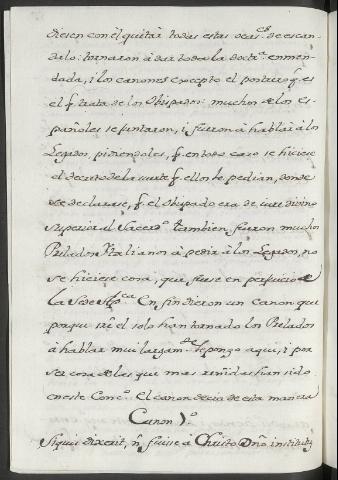 diesen con el quitar todas estas ocas.es de escan-
dalo: tornaron à dar toda la doct.a enmen-
dada, i los canones excepto el postrero q. es
el q. trata de los Obispados: muchos de los es-
pañoles se juntaron, i fueron à hablar à los
Legados, pidiendoles, q. en todo caso se hiciese
el decreto de la suerte q. ellos le pedian, donde
se declarase, q. el Obispado era de iure divino
superior al Sacerd.o tambien fueron muchos
Prelados Italianos à pedir à los Legados, no
se hiciese cosa, que fuese en perjuicio de
la Sede Ap.ca En fin dieron un canon que
porque sre el solo han tornado los Prelados
à hablar mui largam.te le pongo aqui, i por
ser cosa de las que mas reñidas han sido
en este Conc.o El canon decia de esta manera
Canon 7.o
Siquis dixerit, ñ fuisse à Christo Dño institutũ